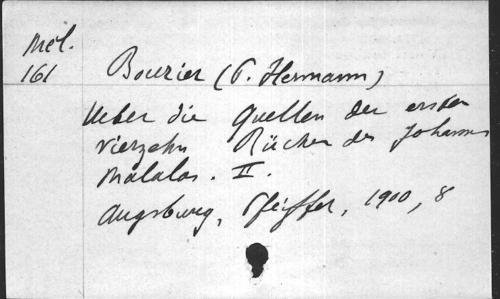 Mél.
161
Bourier (P. Hermann)
Ueber die Quellen der ersten
vierzehn Bücher des Johannes
Malalas. II.
Augsburg, Pfeiffer, 1900, 8